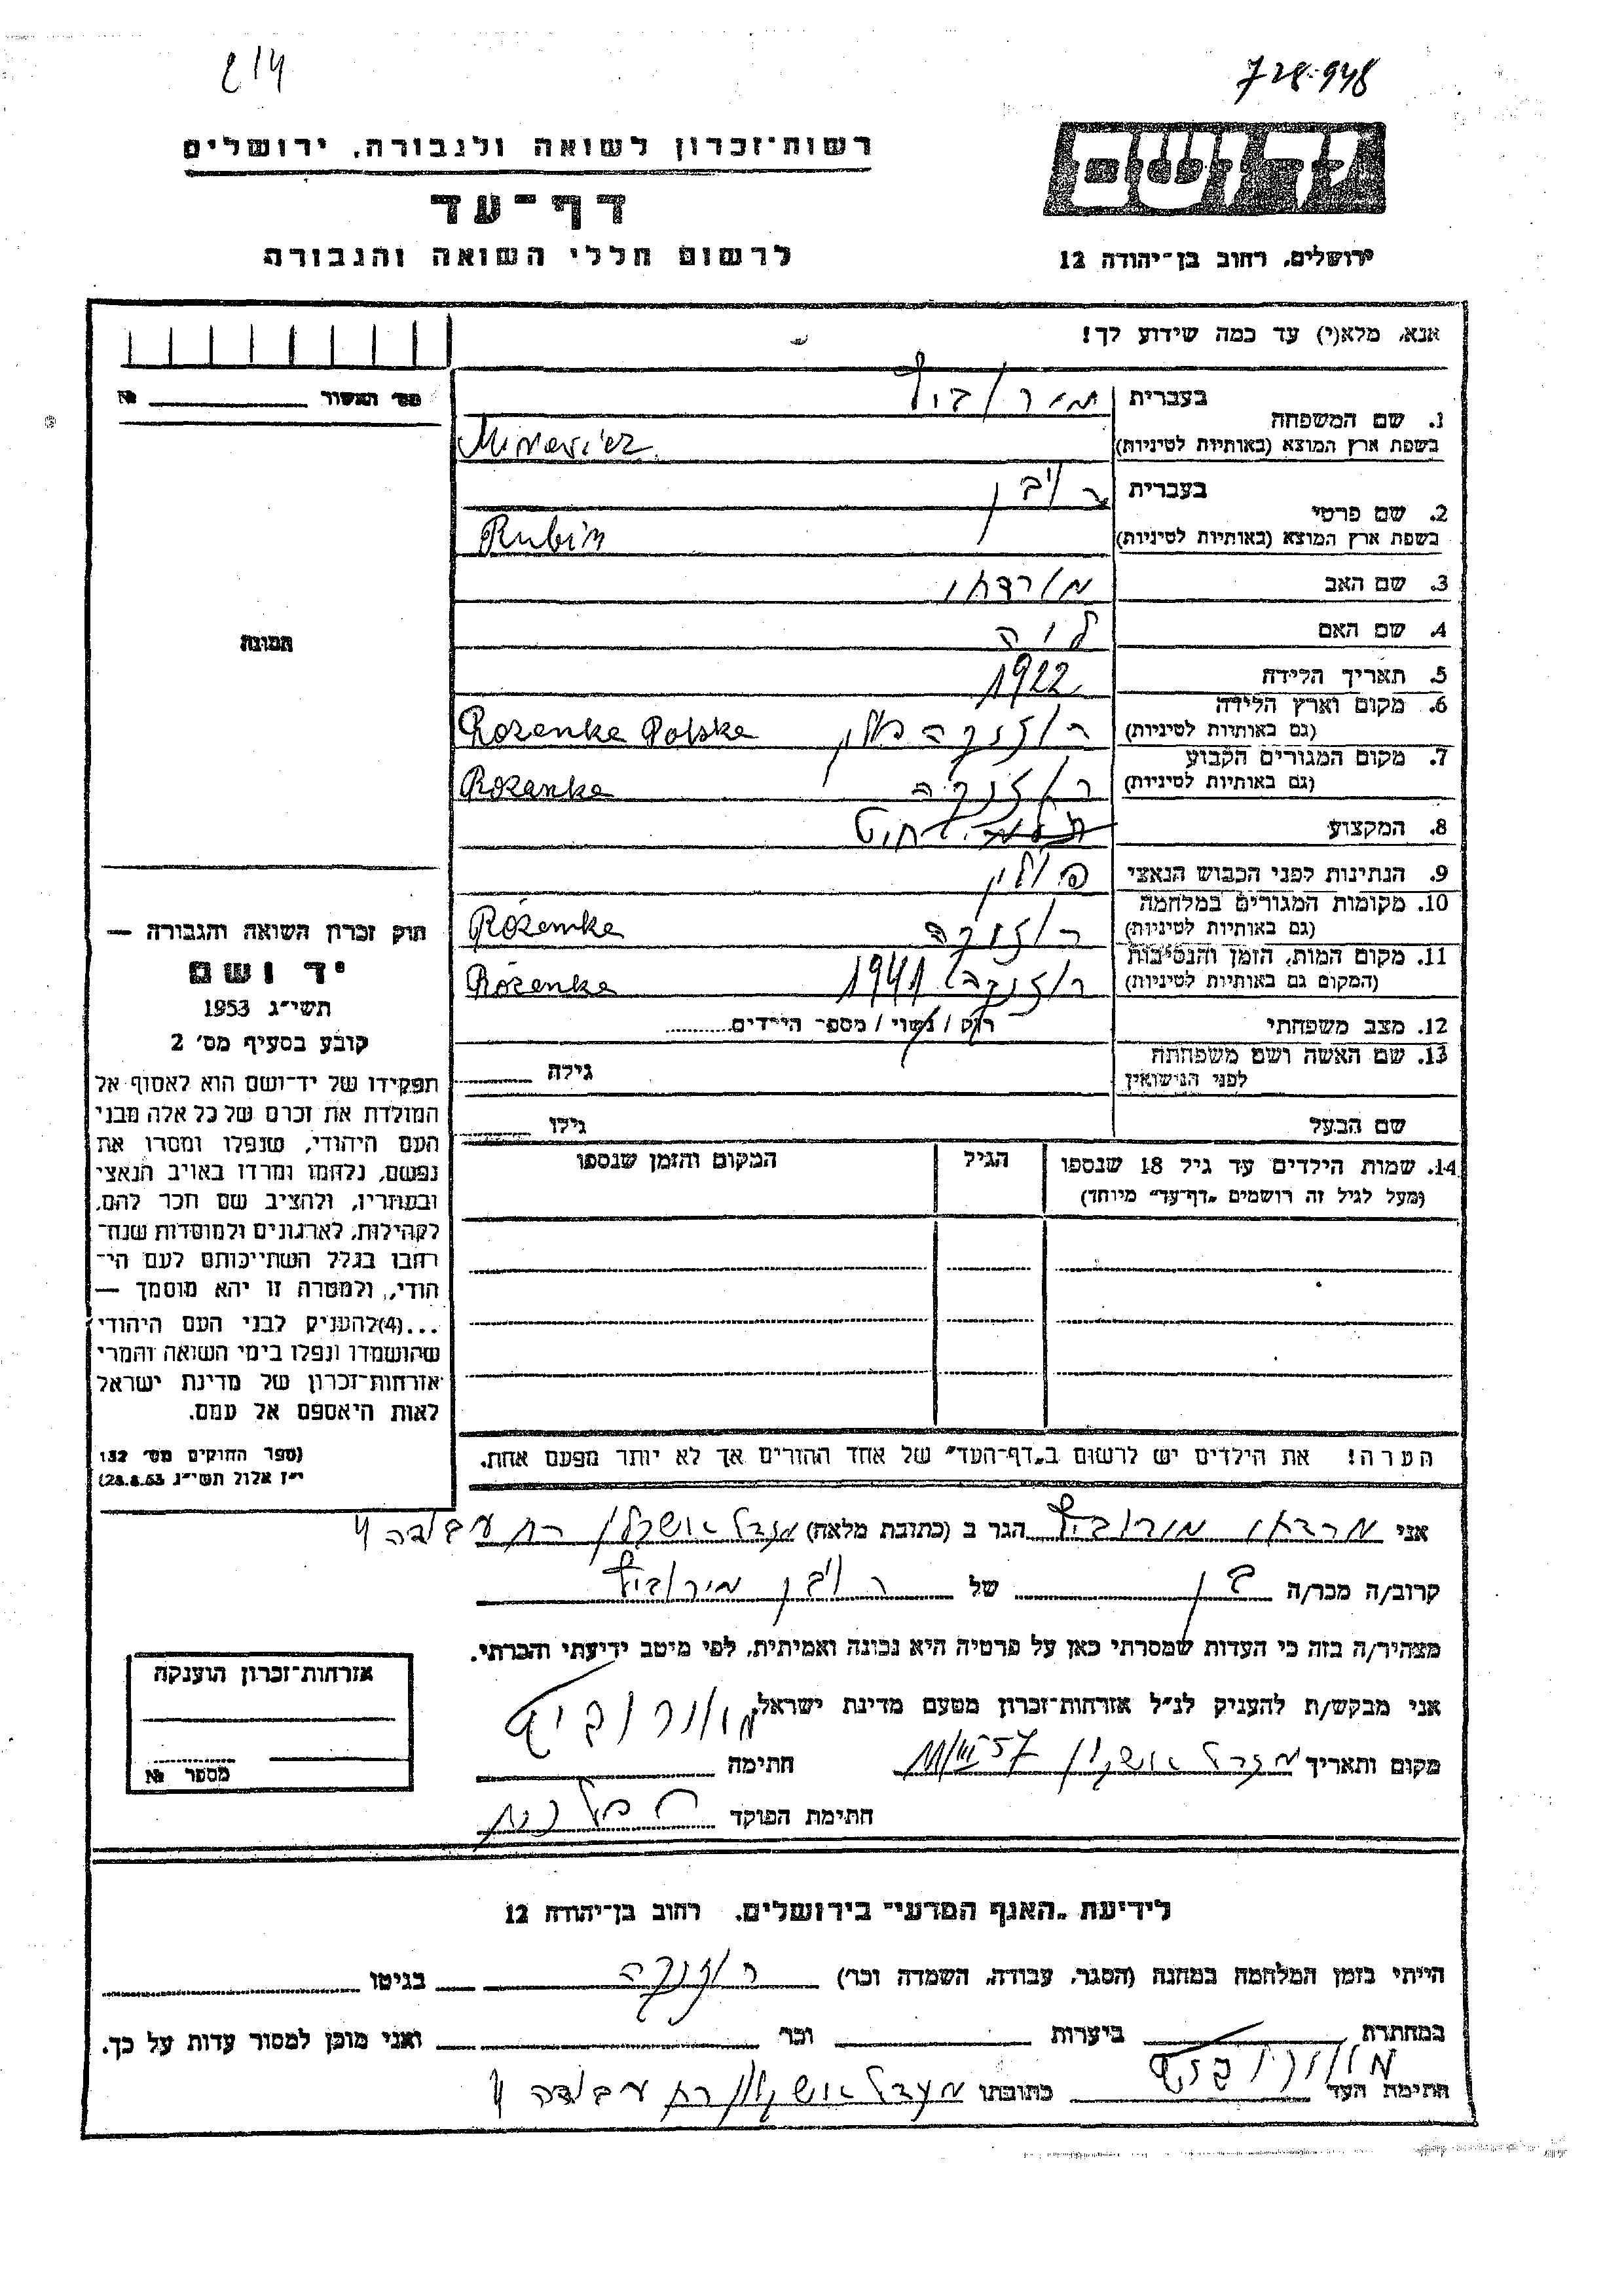 214
728-948
רשות־זכרון לשואה ולגבורה, ירושלים
דף־עד
לרשום חללי השואה והגבורה
ידושם
ירושלים, רחוב בן־יהודה 12
אנא, מלא(י) עד כמה שידוע לך!
מס׳ האשור № 
1. שם המשפחה
בעברית מירוביץ
בשפת ארץ המוצא (באותיות לטיניות) Mirowicz
2. שם פרטי
בעברית ראובן
בשפת ארץ המוצא (באותיות לטיניות) Rubin
3. שם האב מורדחי
4. שם האם לוה
5. תאריך הלידה 1922
6. מקום וארץ הלידה
(גם באותיות לטיניות) רוזנקה פולין Rozanka Polska
7. מקום המגורים הקבוע
(גם באותיות לטיניות) רוזנקה Rózanka
8. המקצוע
9. הנתינות לפני הכבוש הנאצי פולין
10. מקומות המגורים במלחמה
(גם באותיות לטיניות) רוזנקה Rózanka
11. מקום המות, הזמן והנסיבות
(המקום גם באותיות לטיניות) רוזנקה 1941 Rózanka
12. מצב משפחתי רוק / נשוי / מספר הילדים
13. שם האשה ושם משפחתה
לפני הנישואין גילה
שם הבעל גילו
14. שמות הילדים עד גיל 18 שנספו הגיל המקום והזמן שנספו
(מעל לגיל זה רושמים „דף־עד״ מיוחד)
הערה! את הילדים יש לרשום ב„דף־העד״ של אחד ההורים אך לא יותר מפעם אחת.
תמונה
חוק זכרון השואה והגבורה —
יד ושם
תשי״ג 1953
קובע בסעיף מס׳ 2
תפקידו של יד־ושם הוא לאסוף אל
המולדת את זכרם של כל אלה מבני
העם היהודי, שנפלו ומסרו את
נפשם, נלחמו ומרדו באויב הנאצי
ובעוזריו, ולהציב שם וזכר להם,
לקהילות, לארגונים ולמוסדות שנח־
רבו בגלל השתייכותם לעם הי־
הודי, ולמטרה זו יהא מוסמך —
...(4)להעניק לבני העם היהודי
שהושמדו ונפלו בימי השואה והמרי
אזרחות־זכרון של מדינת ישראל
לאות היאספם אל עמם.
(ספר החוקים מס׳ 132
י״ז אלול תשי״ג 28.8.53)
אני מרדחי מירוביץ הגר ב (כתובת מלאה) מגדל אשקלון רח עבודה 4
קרוב/ה מכר/ה בן של ראובן מירוביץ
מצהיר/ה בזה כי העדות שמסרתי כאן על פרטיה היא נכונה ואמיתית, לפי מיטב ידיעתי והכרתי.
אני מבקש/ת להעניק לנ״ל אזרחות־זכרון מטעם מדינת ישראל.
מקום ותאריך מגדל אשקלון 11/III 57 חתימה מירוביץ
חתימת הפוקד
אזרחות־זכרון הוענקה
מספר №
לידיעת „האגף המדעי״ בירושלים, רחוב בן־יהודה 12
הייתי בזמן המלחמה במחנה (הסגר, עבודה, השמדה וכו׳) רוזנקה בגיטו
במחתרת ביערות וכו׳ ואני מוכן למסור עדות על כך.
חתימת העד מירוביץ כתובתו מגדל אשקלון רח עבודה 4